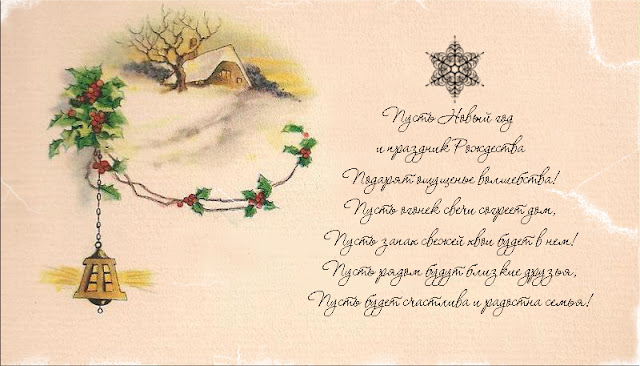 Пусть Новый год
и праздник Рождества
Подарят ощущенье волшебства!
Пусть огонек свечи согреет дом,
Пусть запах свежей хвои будет в нем!
Пусть рядом будут близкие друзья,
Пусть будет счастлива и радостна семья!